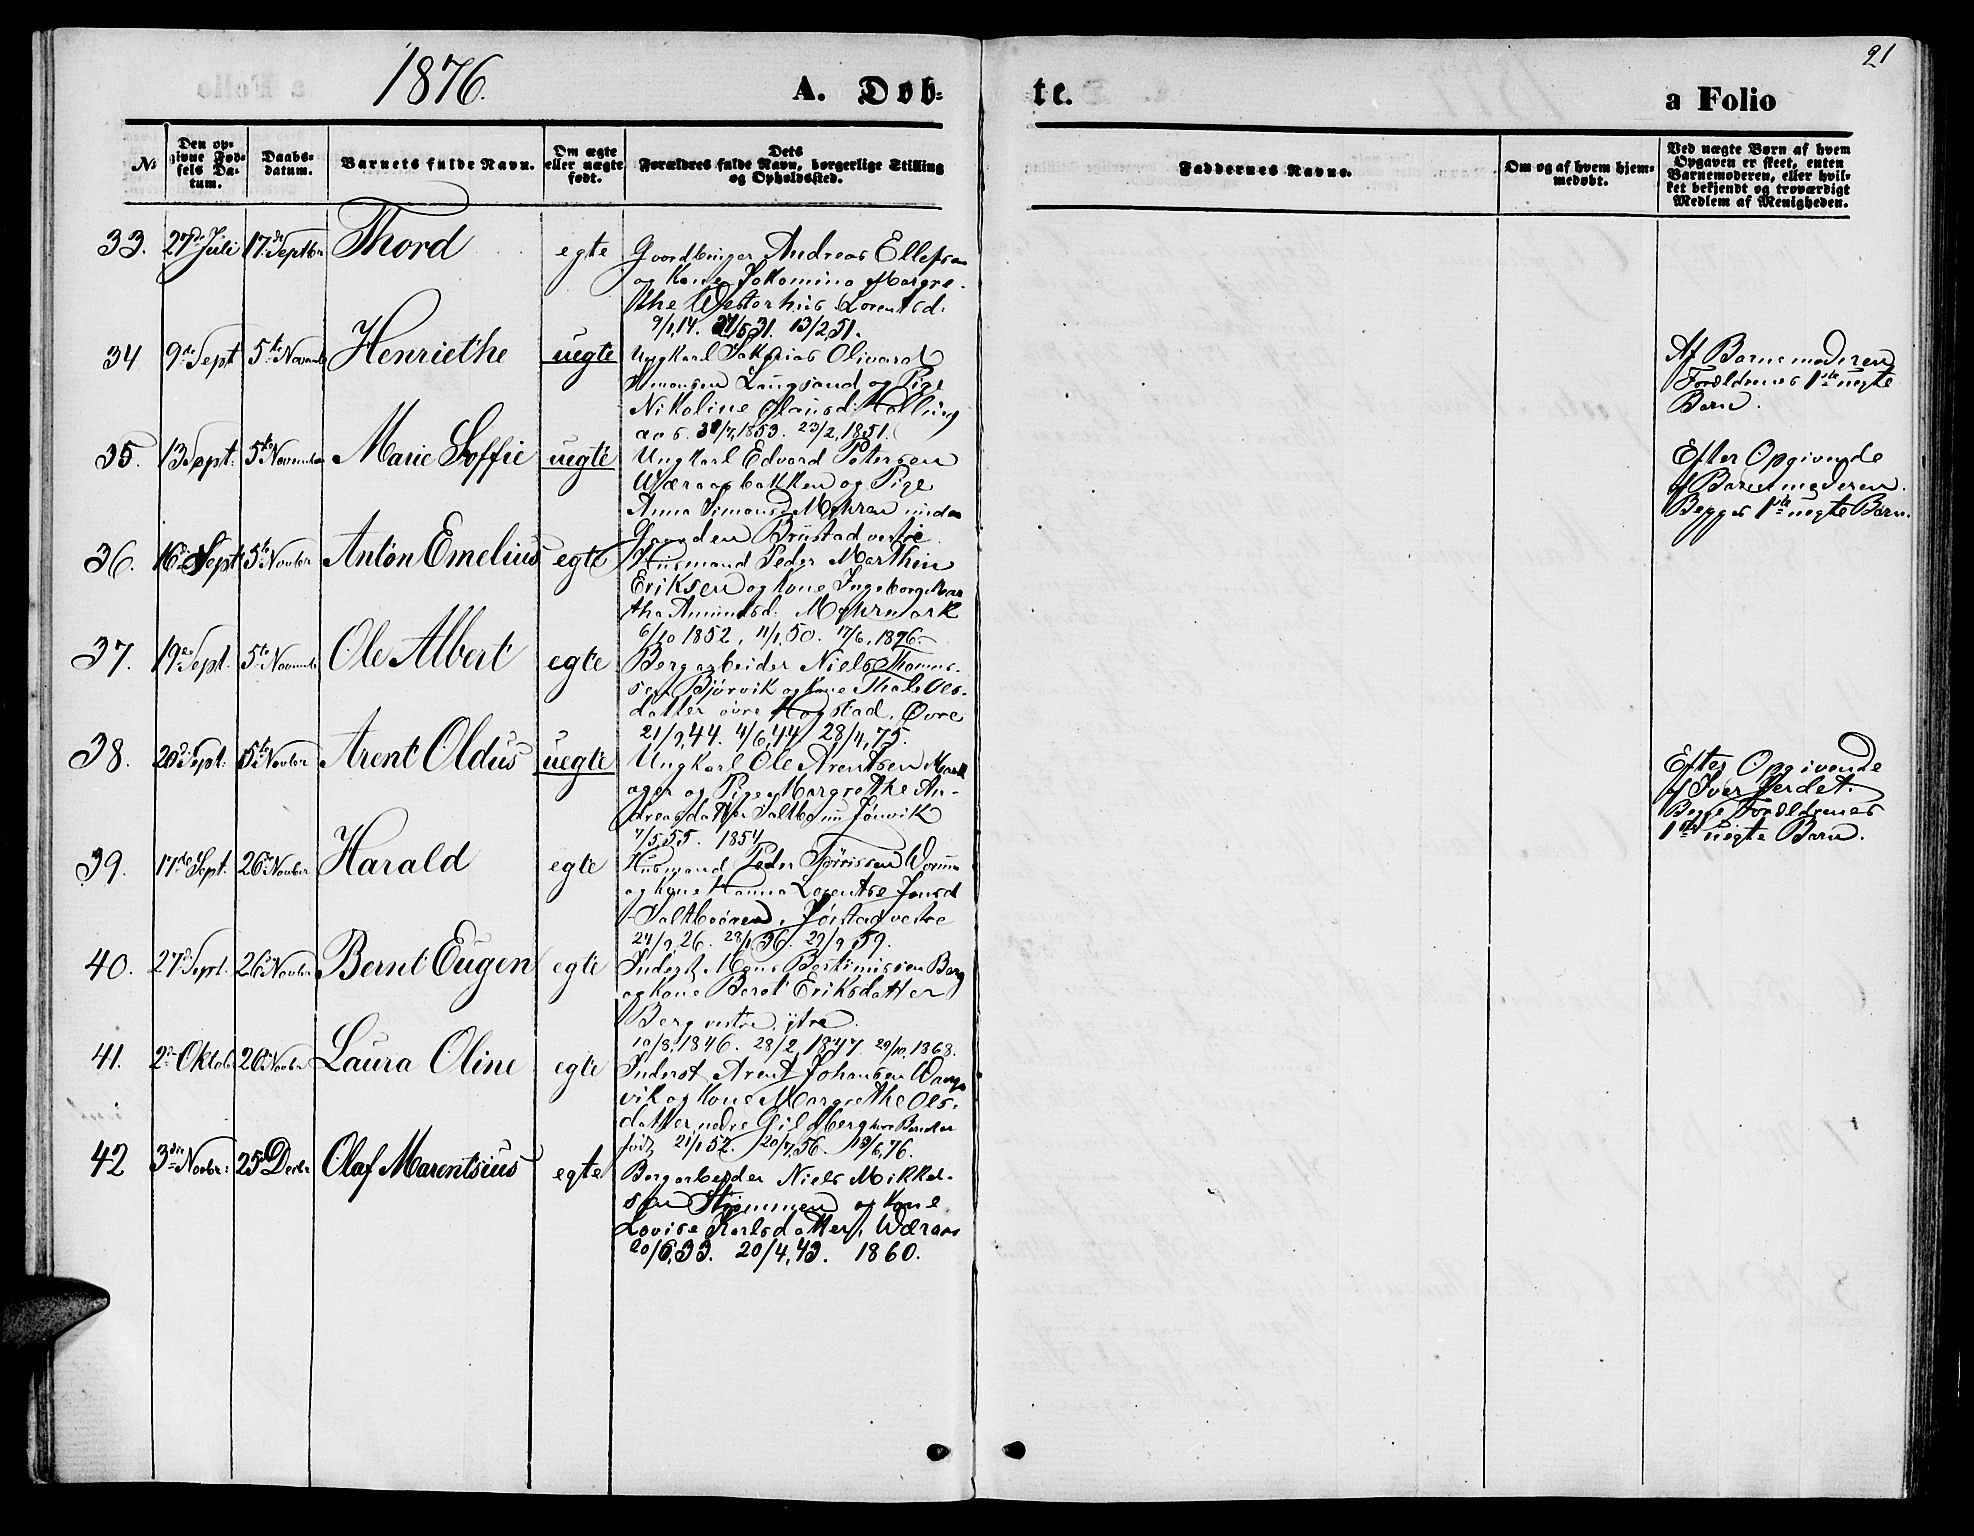 21
1876.
A. Døb-
te.
a Folio
No
Den op-
givne Fød-
sels Da-
tum.
Daabs-
datum.
Barnets fulde Navn.
Om ægte
eller uægte
født.
Dets
Forældres fulde Navn, borgerlige Stilling
og Opholdssted.
Faddernes Navne.
Om og af hvem hjem-
medøbt.
Ved uægte Børn af hvem
Opgaven er skeet, enten
Barnemoderen, eller hvil-
ket bekjendt og troværdigt
Medlem af Menigheden.
33. 27de Juli 17de Septbr Thord egte
Andreas Ellefsen
og Kone Jokomina Margre-
the Westerhus Lorentsd:
9/1,14. 13/2 51.
34 9de Sept 5te Novemb Henriethe uegte
Ungkarl Sakarias Olivard
Simonsen Langsand og Pige
Nikoline Olausd: Kolling
aas. 1853. 23/2, 1851.
Af Barnemoderen
Forældrenes 1ste uegte
Barn.
35. 13 Sept: 5te November Marie Soffie uegte
Ungkarl Edvard Petersen
Wæraasbakken og Pige
Anna Simonsd Mohran under
Gaarden Brustad vestre
Efter Opgivende
af Barnemoderen.
Begges 1ste uegte Barn.
36. 16de Sept 5te Novbr Anton Emelius egte
Husmand Peder Marthin
Eriksen og Kone Ingeborg Mar
tha Amundsd: Mohrmark
6/10 1852, 11/1, 50. 17/6, 1876.
37. 19de Sept. 5te Novemb Ole Albert egte
Bergarbeider Niels Thomas-
sen Bjørvik og Kone Thale Ols-
datter øvre Hogstad. Øvre
21/9,44. 4/6,44 28/4,75.
38. 20de Sept. 5te Novbr Arent Oldus uegte
Ungkarl Ole Arentsen
ager og Pige Margrethe An-
dreasdatter Saltbø
7/5,55. 1854
Efter Opgivende
af Iver Verdet.
Begge Forældrenes
1ste uegte Barn.
39. 17de Sept. 26de Novbr Harald egte
Husmand Peder
og Kone Hanna Lorentse Jonsd
Saltbøren. Jørstad vestre
24/9,26. 28/1,36. 29/9,59.
40. 27de Sept. 26de Novbr Bernt Eugen egte
Inderst Mons Berg
og Kone Beret Eriksdatter
Berg vestre, ytre.
10/8, 1846. 28/2, 1847. 29/10, 1868.
41. 2de Oktob. 26de Novbr Laura Oline egte
Inderst Arent Johansen Wangs
vik og Kone Margrethe Ols-
datter nedre Gilberg hvor Barnet er
født 21/1 52. 20/7,56. 18/6,76.
42 3die Novbr: 25de Decbr Olaf Marentsius egte
Bergarbeider Niels Mikkel-
sen Strømmen og Kone
Lovise Karlsdatter, Wæraas
20/6,33. 20/4,43. 1860.